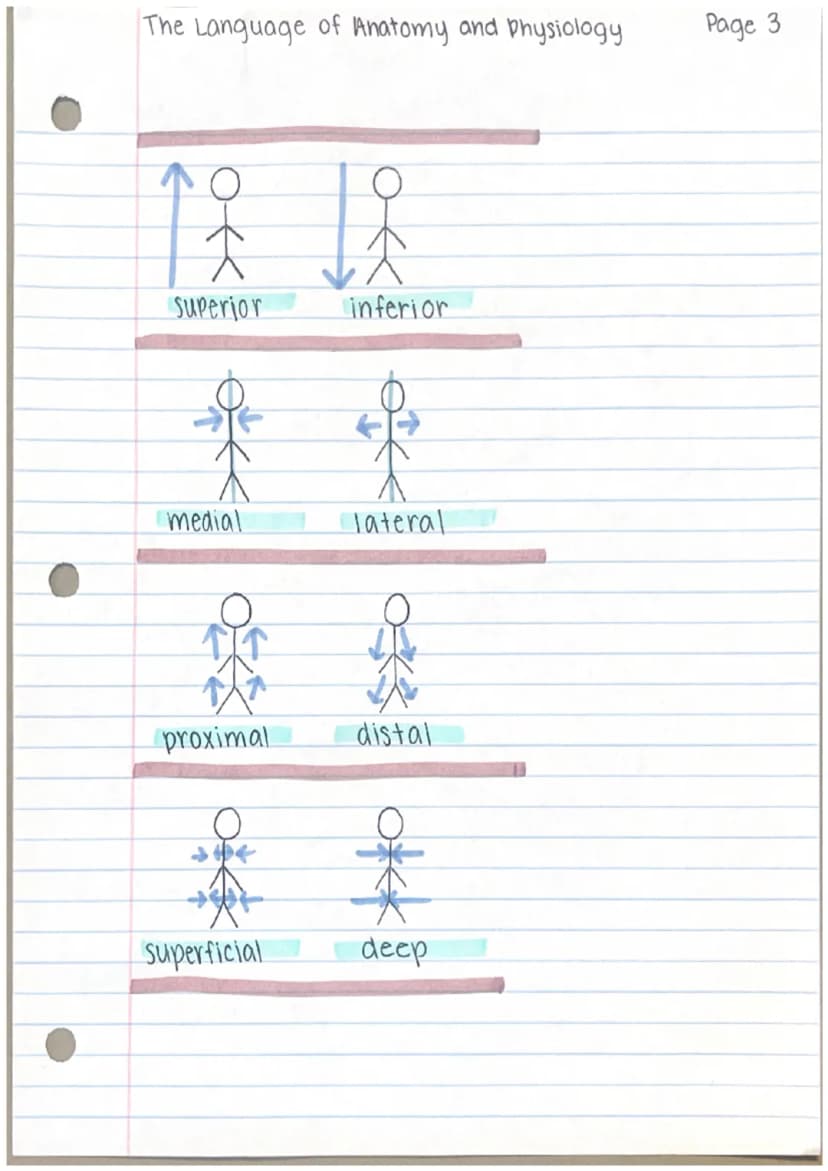 The Language of Anatomy and Physiology Page 3
superior inferior
medial lateral
proximal distal
superficial deep